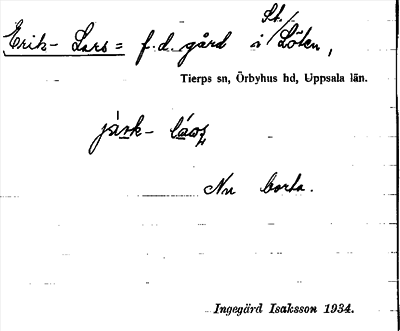 Erik-Lars= f.d. gård i St. Löten,
Tierps sn, Örbyhus hd, Uppsala län.
Nu borta.
Ingegärd Isaksson 1934.